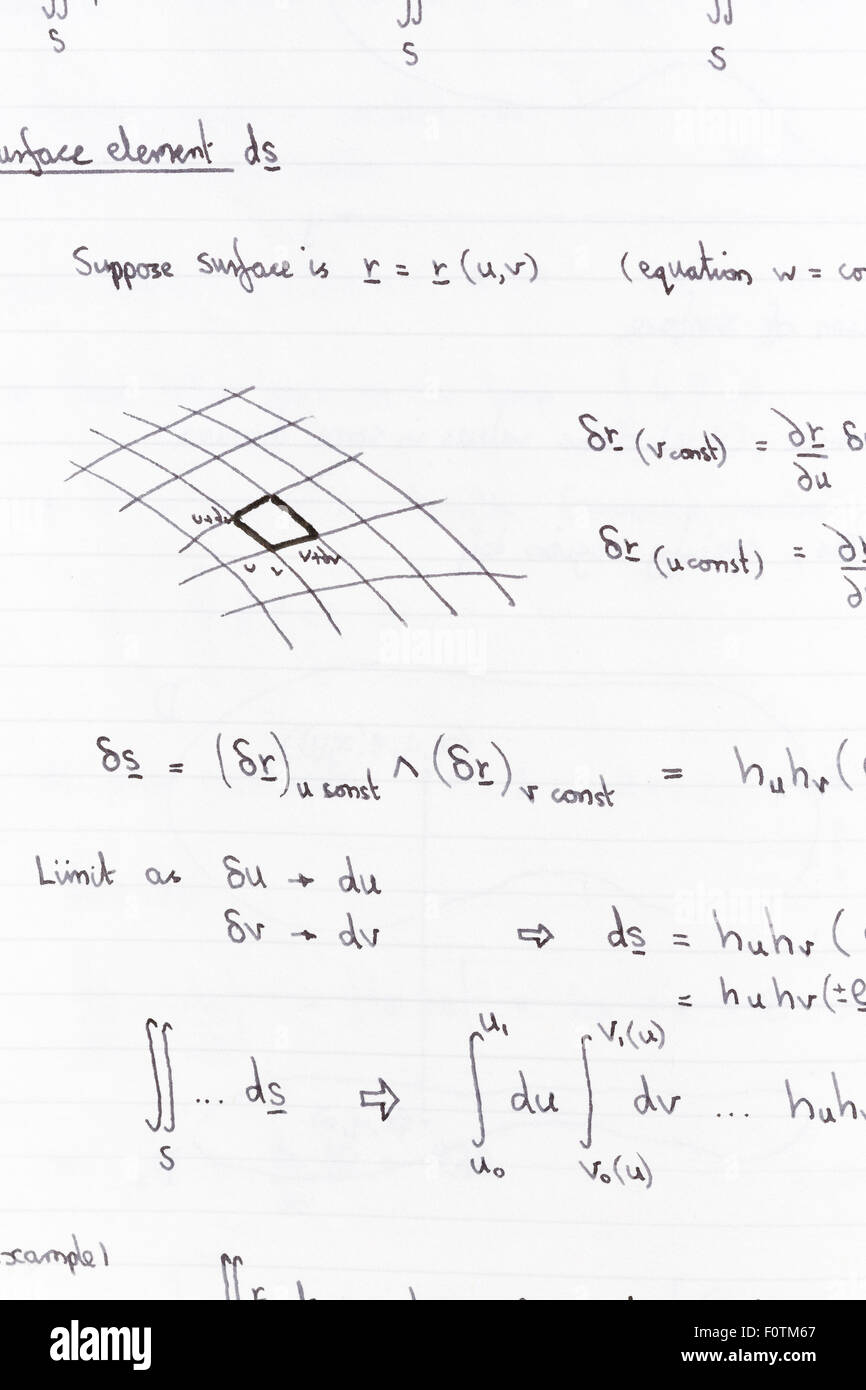 ∬ ∬ ∬
S S S
urface element ds
Suppose surface is r = r (u,v) (equation w = co
δr (v const) = ∂r/∂u δ
δr (u const) = ∂r/∂
u+du
u v v+dv
δs = (δr)u sonst ∧ (δr)v const = hu hv (
Limit as δu → du
δv → dv ⇒ ds = hu hv (
= hu hv (± e
∬S ... ds ⇒ ∫u₀^u₁ du ∫v₀(u)^v₁(u) dv ... hu h
xample 1
alamy
Image ID: F0TM67
www.alamy.com